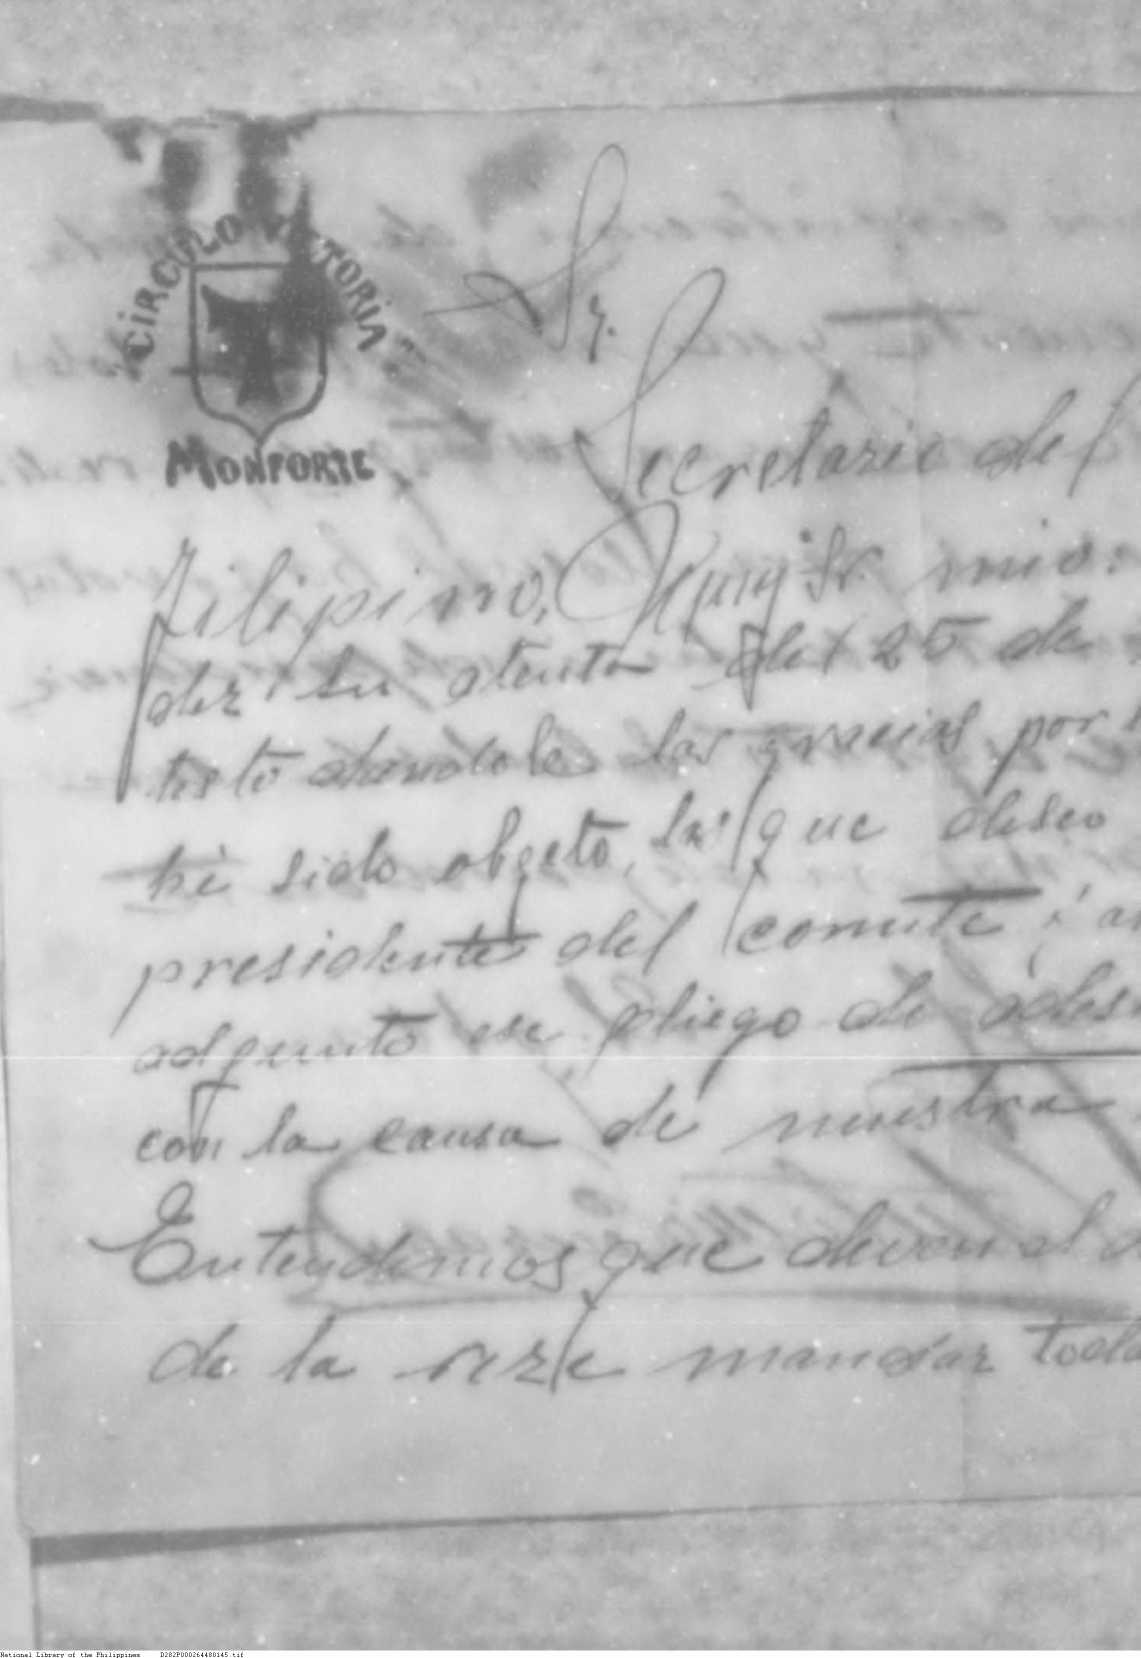 "CIRCULO VICTORIA"
MONFORTE
Sr.
Secretario del
Filipino, Muy Sr. mio:
su atenta del 25 de
testo dandole las gracias por
hé sido objeto, las que deseo
presidente del comite, é
adjunto ese pliego de
con la causa de nuestra
Entendemos que deven el
de la reze mandar toda
National Library of the Philippines D282P000264480145.tif